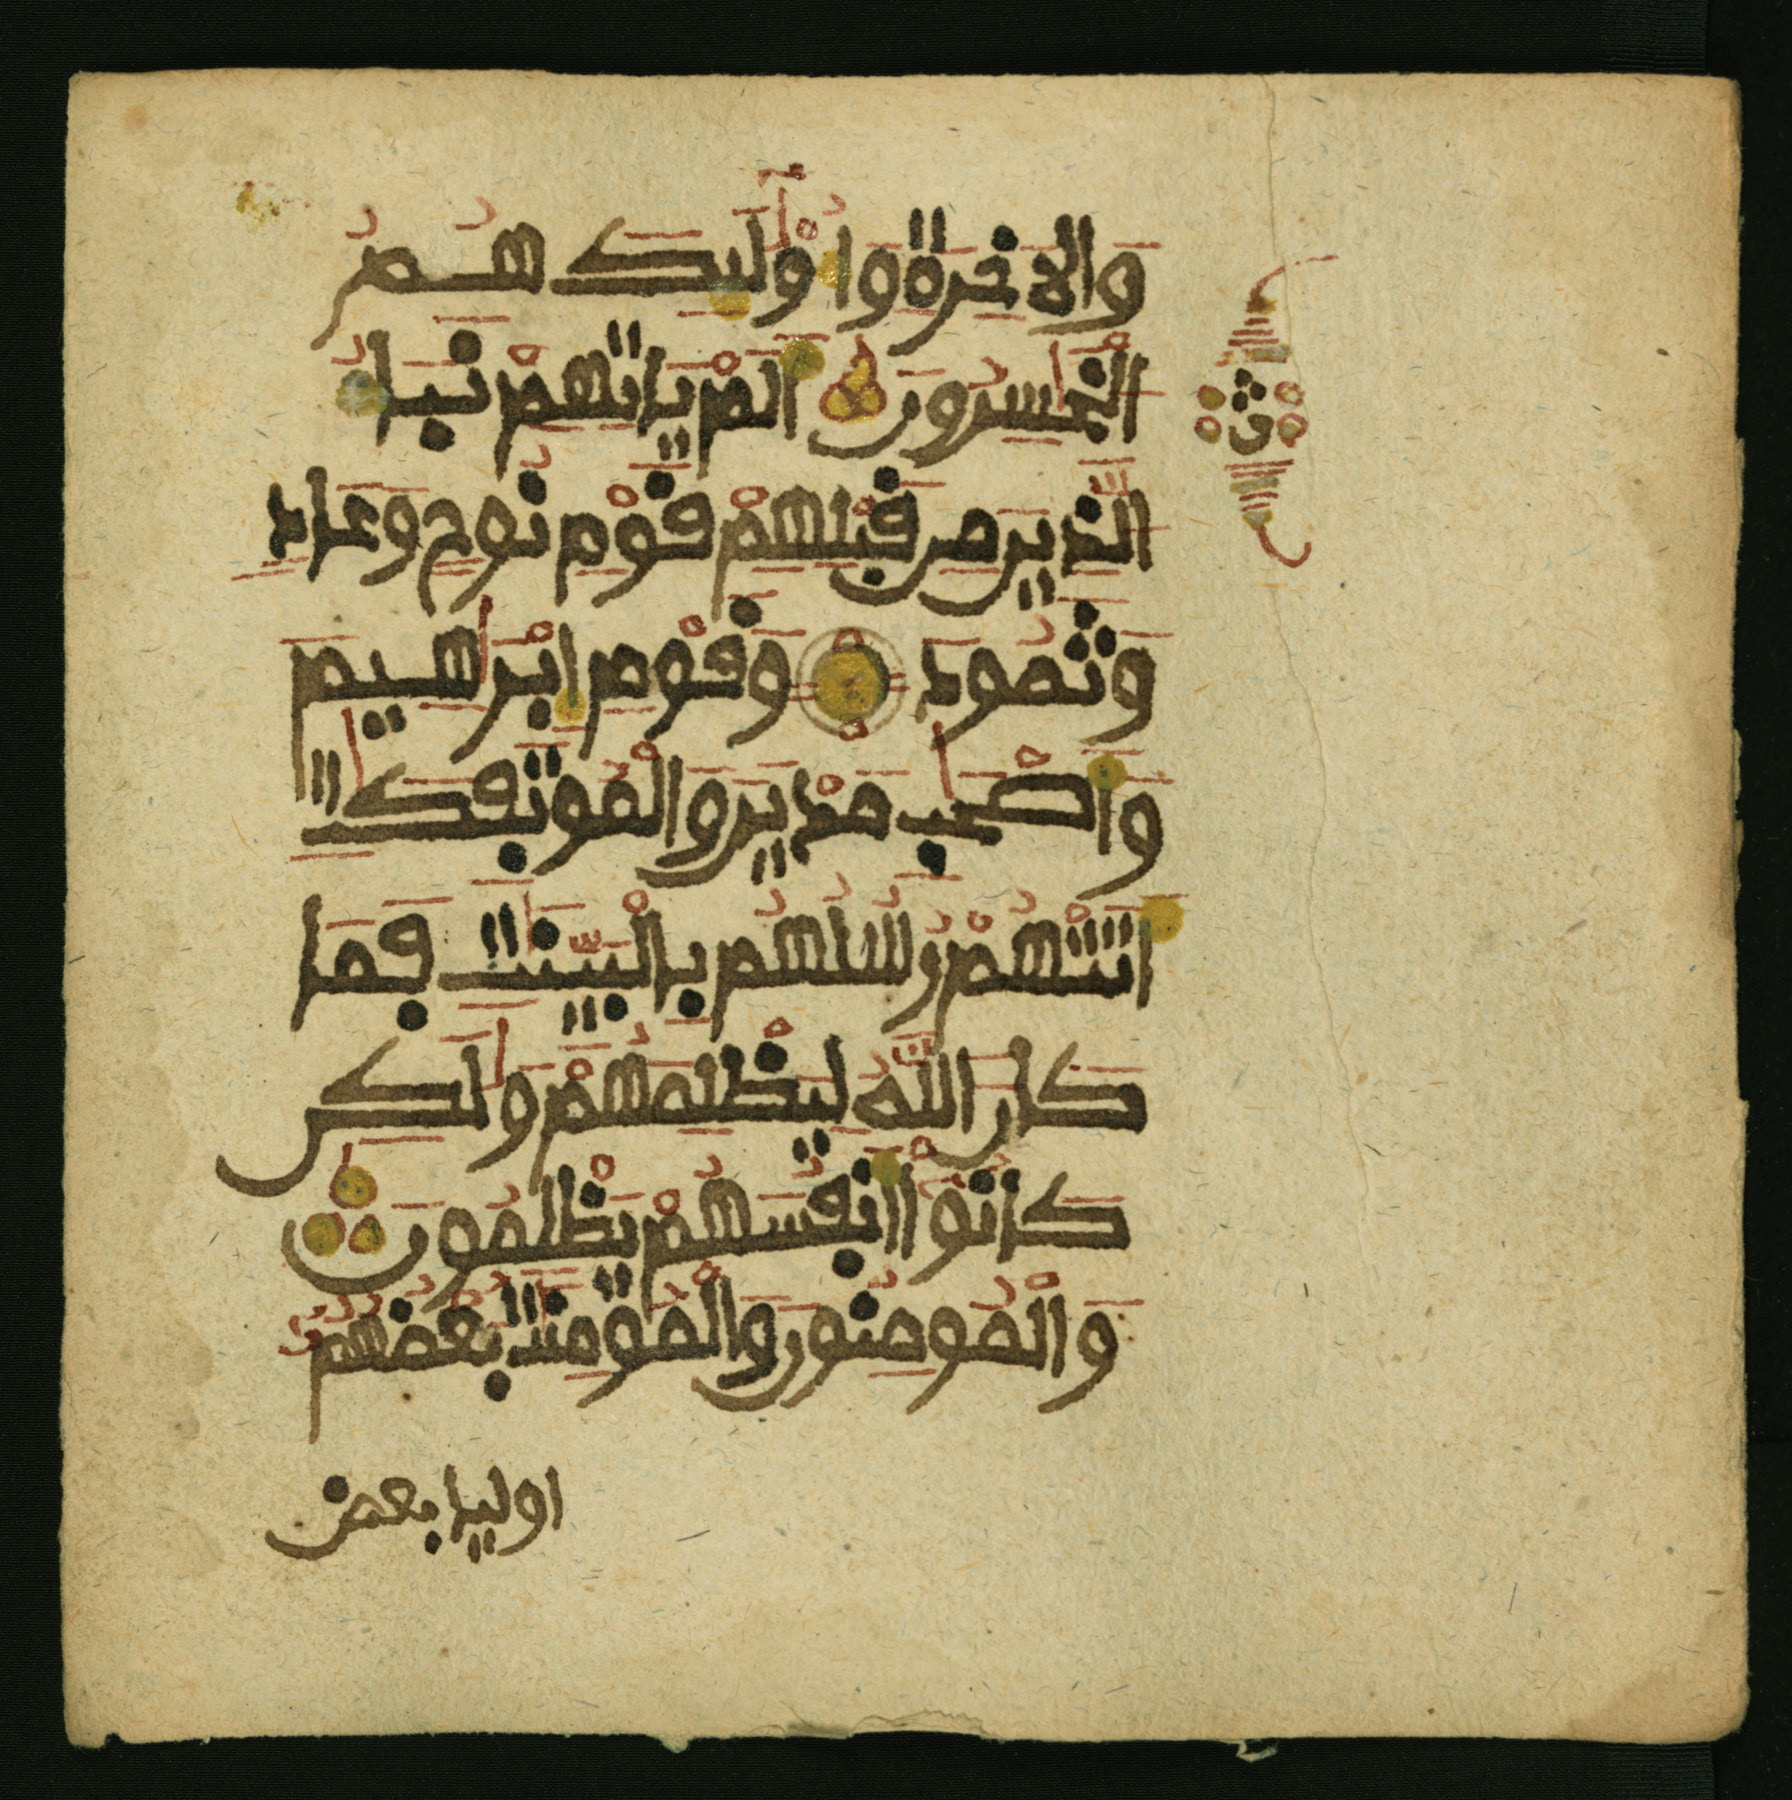 وَالَاخِرَةِ وَأُوْلَٰٓئِكَ هُمُ
الْخَٰسِرُونَ أَلَمْ يَاتِهِمْ نَبَأُ
الَّذِينَ مِن قَبْلِهِمْ قَوْمِ نُوحٍ وَعَادٍ
وَثَمُودَ وَقَوْمِ إِبْرَٰهِيمَ
وَأَصْحَٰبِ مَدْيَنَ وَالْمُوتَفِكَٰتِ
أَتَتْهُمْ رُسُلُهُم بِالْبَيِّنَٰتِ فَمَا
كَانَ اللَّهُ لِيَظْلِمَهُمْ وَلَٰكِن
كَانُوٓا أَنفُسَهُمْ يَظْلِمُونَ
وَالْمُومِنُونَ وَالْمُومِنَٰتُ بَعْضُهُمُۥٓ
ث
اوليا بعض